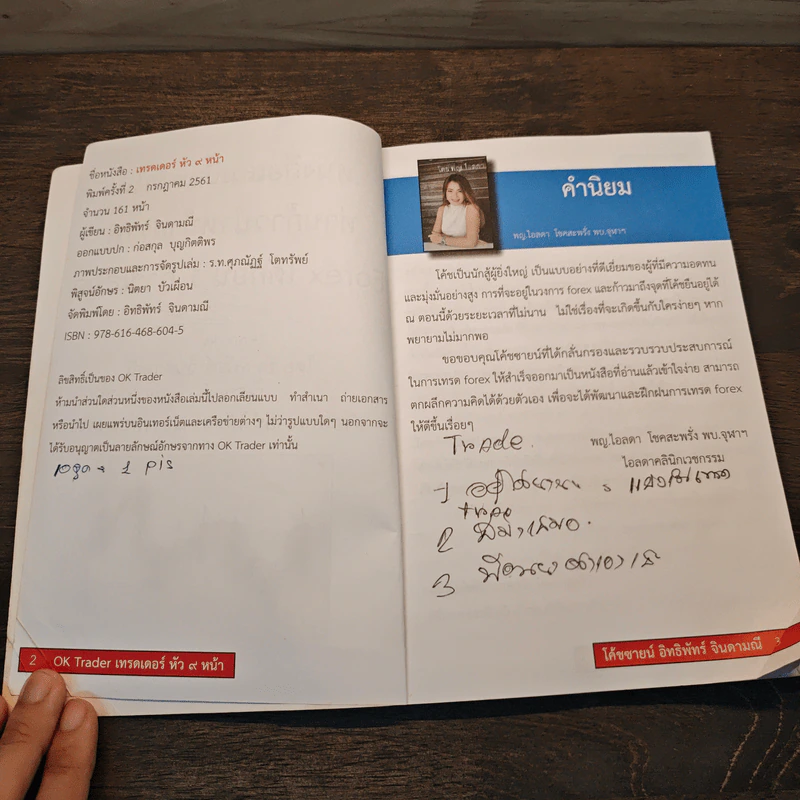 ชื่อหนังสือ : เทรดเดอร์ หัว ๙ หน้า
พิมพ์ครั้งที่ 2 กรกฎาคม 2561
จำนวน 161 หน้า
ผู้เขียน : อิทธิพัทร์ จินดามณี
ออกแบบปก : ก่อสกุล บุญกิตติพร
ภาพประกอบและการจัดรูปเล่ม : ร.ท.ศุภณัฏฐ์ โตทรัพย์
พิสูจน์อักษร : นิตยา บัวเผื่อน
จัดพิมพ์โดย : อิทธิพัทร์ จินดามณี
ISBN : 978-616-468-604-5
ลิขสิทธิ์เป็นของ OK Trader
ห้ามนำส่วนใดส่วนหนึ่งของหนังสือเล่มนี้ไปลอกเลียนแบบ ทำสำเนา ถ่ายเอกสาร
หรือนำไป เผยแพร่บนอินเทอร์เน็ตและเครือข่ายต่างๆ ไม่ว่ารูปแบบใดๆ นอกจากจะ
ได้รับอนุญาตเป็นลายลักษณ์อักษรจากทาง OK Trader เท่านั้น
10จุด = 1 pis
2 OK Trader เทรดเดอร์ หัว ๙ หน้า
คำนิยม
พญ.ไอลดา โชคสะพรั่ง พบ.จุฬาฯ
โค้ชเป็นนักสู้ผู้ยิ่งใหญ่ เป็นแบบอย่างที่ดีเยี่ยมของผู้ที่มีความอดทน
และมุ่งมั่นอย่างสูง การที่จะอยู่ในวงการ forex และก้าวมาถึงจุดที่โค้ชยืนอยู่ได้
ณ ตอนนี้ด้วยระยะเวลาที่ไม่นาน ไม่ใช่เรื่องที่จะเกิดขึ้นกับใครง่ายๆ หาก
พยายามไม่มากพอ
ขอขอบคุณโค้ชซายน์ที่ได้กลั่นกรองและรวบรวบประสบการณ์
ในการเทรด forex ให้สำเร็จออกมาเป็นหนังสือที่อ่านแล้วเข้าใจง่าย สามารถ
ตกผลึกความคิดได้ด้วยตัวเอง เพื่อจะได้พัฒนาและฝึกฝนการเทรด forex
ให้ดีขึ้นเรื่อยๆ
พญ.ไอลดา โชคสะพรั่ง พบ.จุฬาฯ
ไอลดาคลินิกเวชกรรม
Trade
1
2
3
โค้ชซายน์ อิทธิพัทร์ จินดามณี 3